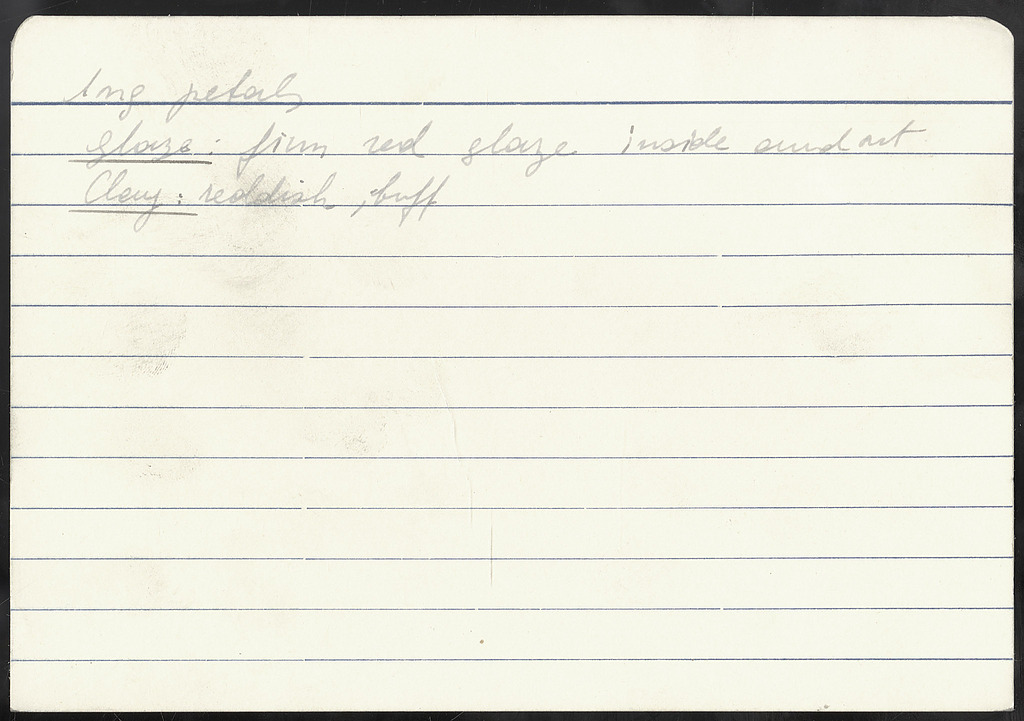 petals
glaze: firm red glaze inside and out
Clay: reddish, buff